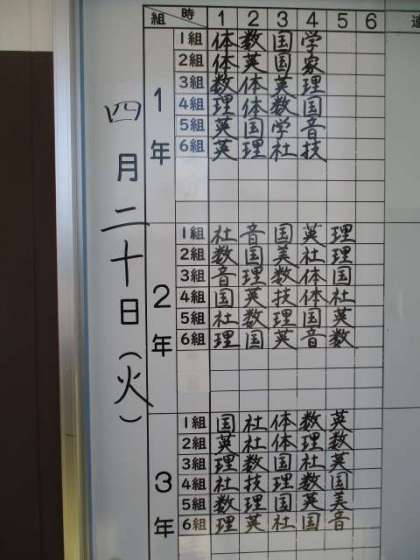 四月二十日(火)
組 時 1 2 3 4 5 6
1年
1組 体 数 国 学
2組 体 英 国 家
3組 数 体 英 理
4組 理 体 数 国
5組 英 国 学 音
6組 英 理 社 技
2年
1組 社 音 国 英 理
2組 数 国 美 社 理
3組 音 理 数 体 国
4組 国 英 技 体 社
5組 社 数 理 国 英
6組 理 国 英 音 数
3年
1組 国 社 体 数 英
2組 英 社 体 理 数
3組 理 数 国 社 英
4組 社 技 理 数 国
5組 数 理 国 英 美
6組 理 英 社 国 音